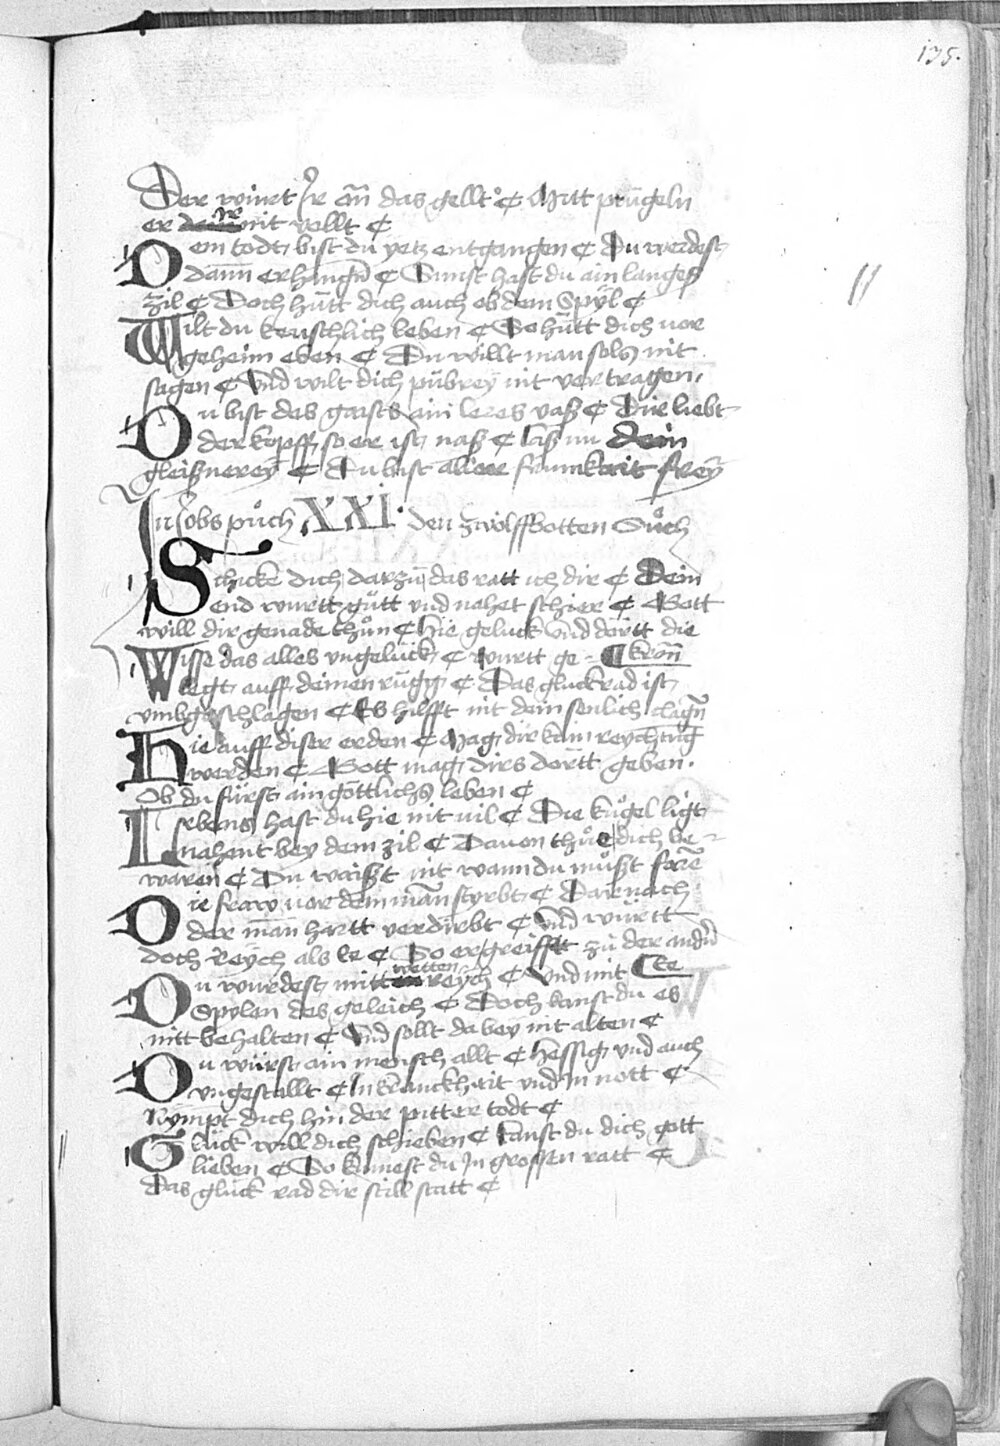 135.
Der wirt Jr an das gellt ¢ Mitt prügeln
er Ir mit vellt ¢
Dem todt bist du yetz entgangen ¢ Du werdest
dann erhangen ¢ Sunst hast du ain langes
zil ¢ Doch hütt dich auch ob dem Spyl ¢
Wilt du keuschlich leben ¢ So hütt dich vor
geheim eben ¢ Du willt man sols nit
sagen ¢ Vnd wilt dich püberey nit vertragen.
Du bist des gaists ain leres vaß ¢ Dir liebt
der kopff so er ist naß ¢ laß nu dein
gleißnerey ¢ Du bist aller frumkait frey
In Jobs půch XXI. den zwölffbotten Sůch
Schicke dich darzů das ratt ich dir ¢ Dein
end wurtt gůtt vnd nahet schier ¢ Gott
will dir genade thůn ¢ hie geluck vnd dortt die
Wisse das alles vngelück ¢ wurtt ge- ¢ kron
legt auff deinen rugg ¢ Das gluckrad ist
vmbgeschlagen ¢ Es hilfft nit dein senlich clagn
Hie auff diser erden ¢ Mag dir kain reychtug
werden ¢ Gott mag dirs dortt geben.
Ob du fürst ain göttlichs leben ¢
Lebens hast du hie nit vil ¢ Die kugel ligt
nahent bey dem zil ¢ Dauon thů dich be-
waren ¢ Du waißt nit wann du můßt farē
Die fraw vor dem man styrbt ¢ Darnach
der man hartt verdirbt ¢ Vnd württ
doch Reych als Ee ¢ So ergreifft zů der andn
Du wurdest mitt wetten reych ¢ Vnd mit ¢ Ee
Spylen des geleich ¢ Doch kanst du es
nitt behalten ¢ Vnd sollt dabey nit alten ¢
Du würst ain mensch allt ¢ hessig vnd auch
vngestallt ¢ In kranckhait vnd In nott ¢
Nympt dich hin der pitter todt ¢
Glück will dich schieben ¢ kanst du dich gott
lieben ¢ So kumest du In grossen ratt ¢
Das gluck rad dir still statt ¢